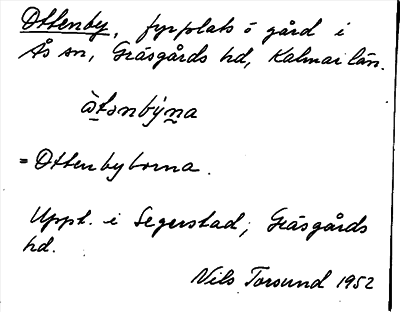 Ottenby, fyrplats o gård i
Ås sn, Gräsgårds hd, Kalmar län.
àt̲ənbýn̲a
= Ottenbyborna.
Uppt. i Segerstad, Gräsgårds
hd.
Nils Torsund 1952